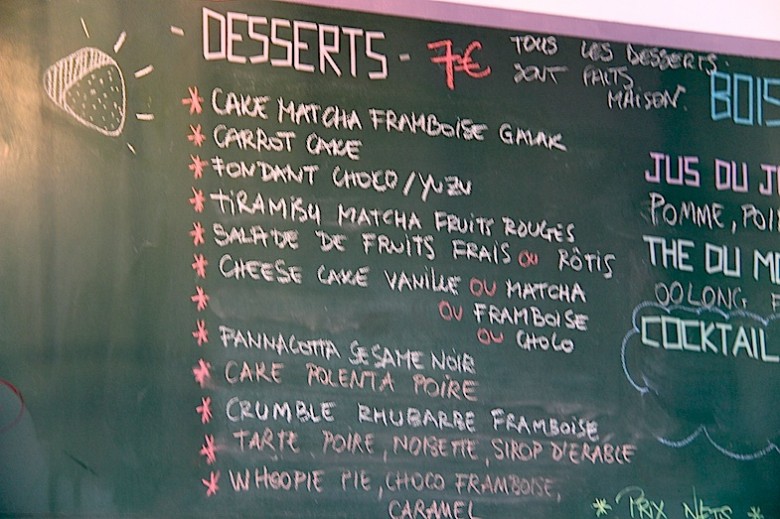 DESSERTS - 7€
TOUS LES DESSERTS
SONT FAITS
MAISON.
* CAKE MATCHA FRAMBOISE GALAK
* CARROT CAKE
* FONDANT CHOCO/YUZU
* TIRAMISU MATCHA FRUITS ROUGES
* SALADE DE FRUITS FRAIS OU RÔTIS
* CHEESE CAKE VANILLE OU MATCHA
* OU FRAMBOISE
OU CHOCO
* PANNACOTTA SESAME NOIR
* CAKE POLENTA POIRE
* CRUMBLE RHUBARBE FRAMBOISE
* TARTE POIRE, NOISETTE, SIROP D'ERABLE
* WHOOPIE PIE, CHOCO FRAMBOISE,
CARAMEL
BOIS
JUS DU J
POMME, POI
THE DU MO
OOLONG
COCKTAIL
* PRIX NETS *